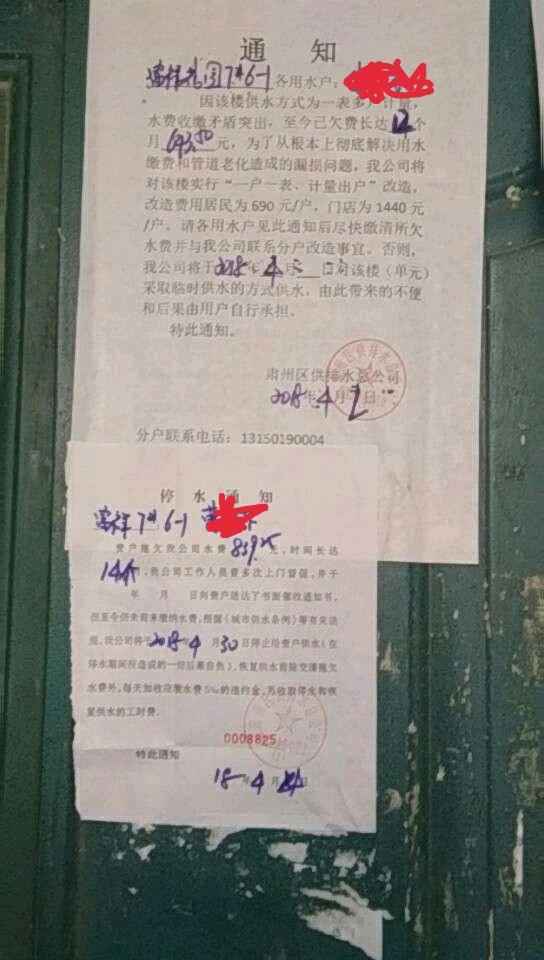 通 知
7#6-1 各用水户：
因该楼供水方式为一表多户计量，
水费收缴矛盾突出，至今已欠费长达12个
月 元，为了从根本上彻底解决用水
缴费和管道老化造成的漏损问题，我公司将
对该楼实行“一户一表、计量出户”改造，
改造费用居民为690元/户，门店为1440元
/户。请各用水户见此通知后尽快缴清所欠
水费并与我公司联系分户改造事宜。否则，
我公司将于2018年4月 日对该楼（单元）
采取临时供水的方式供水，由此带来的不便
和后果由用户自行承担。
特此通知。
肃州区供排水总公司
2018年4月2日
分户联系电话：13150190004
停 水 通 知
7#6-1
贵户拖欠我公司水费859.25元，时间长达
14个，我公司工作人员曾多次上门督促，并于
年 月 日向贵户送达了书面催收通知书，
但至今仍未前来缴纳水费，根据《城市供水条例》等有关法
规，我公司将于2018年4月30日停止给贵户供水（在
停水期间所造成的一切后果自负），恢复供水前除交清拖欠
水费外，每天加收应缴水费5‰的违约金，另收取停水和恢
复供水的工时费。
0008825
特此通知
18年4月 日